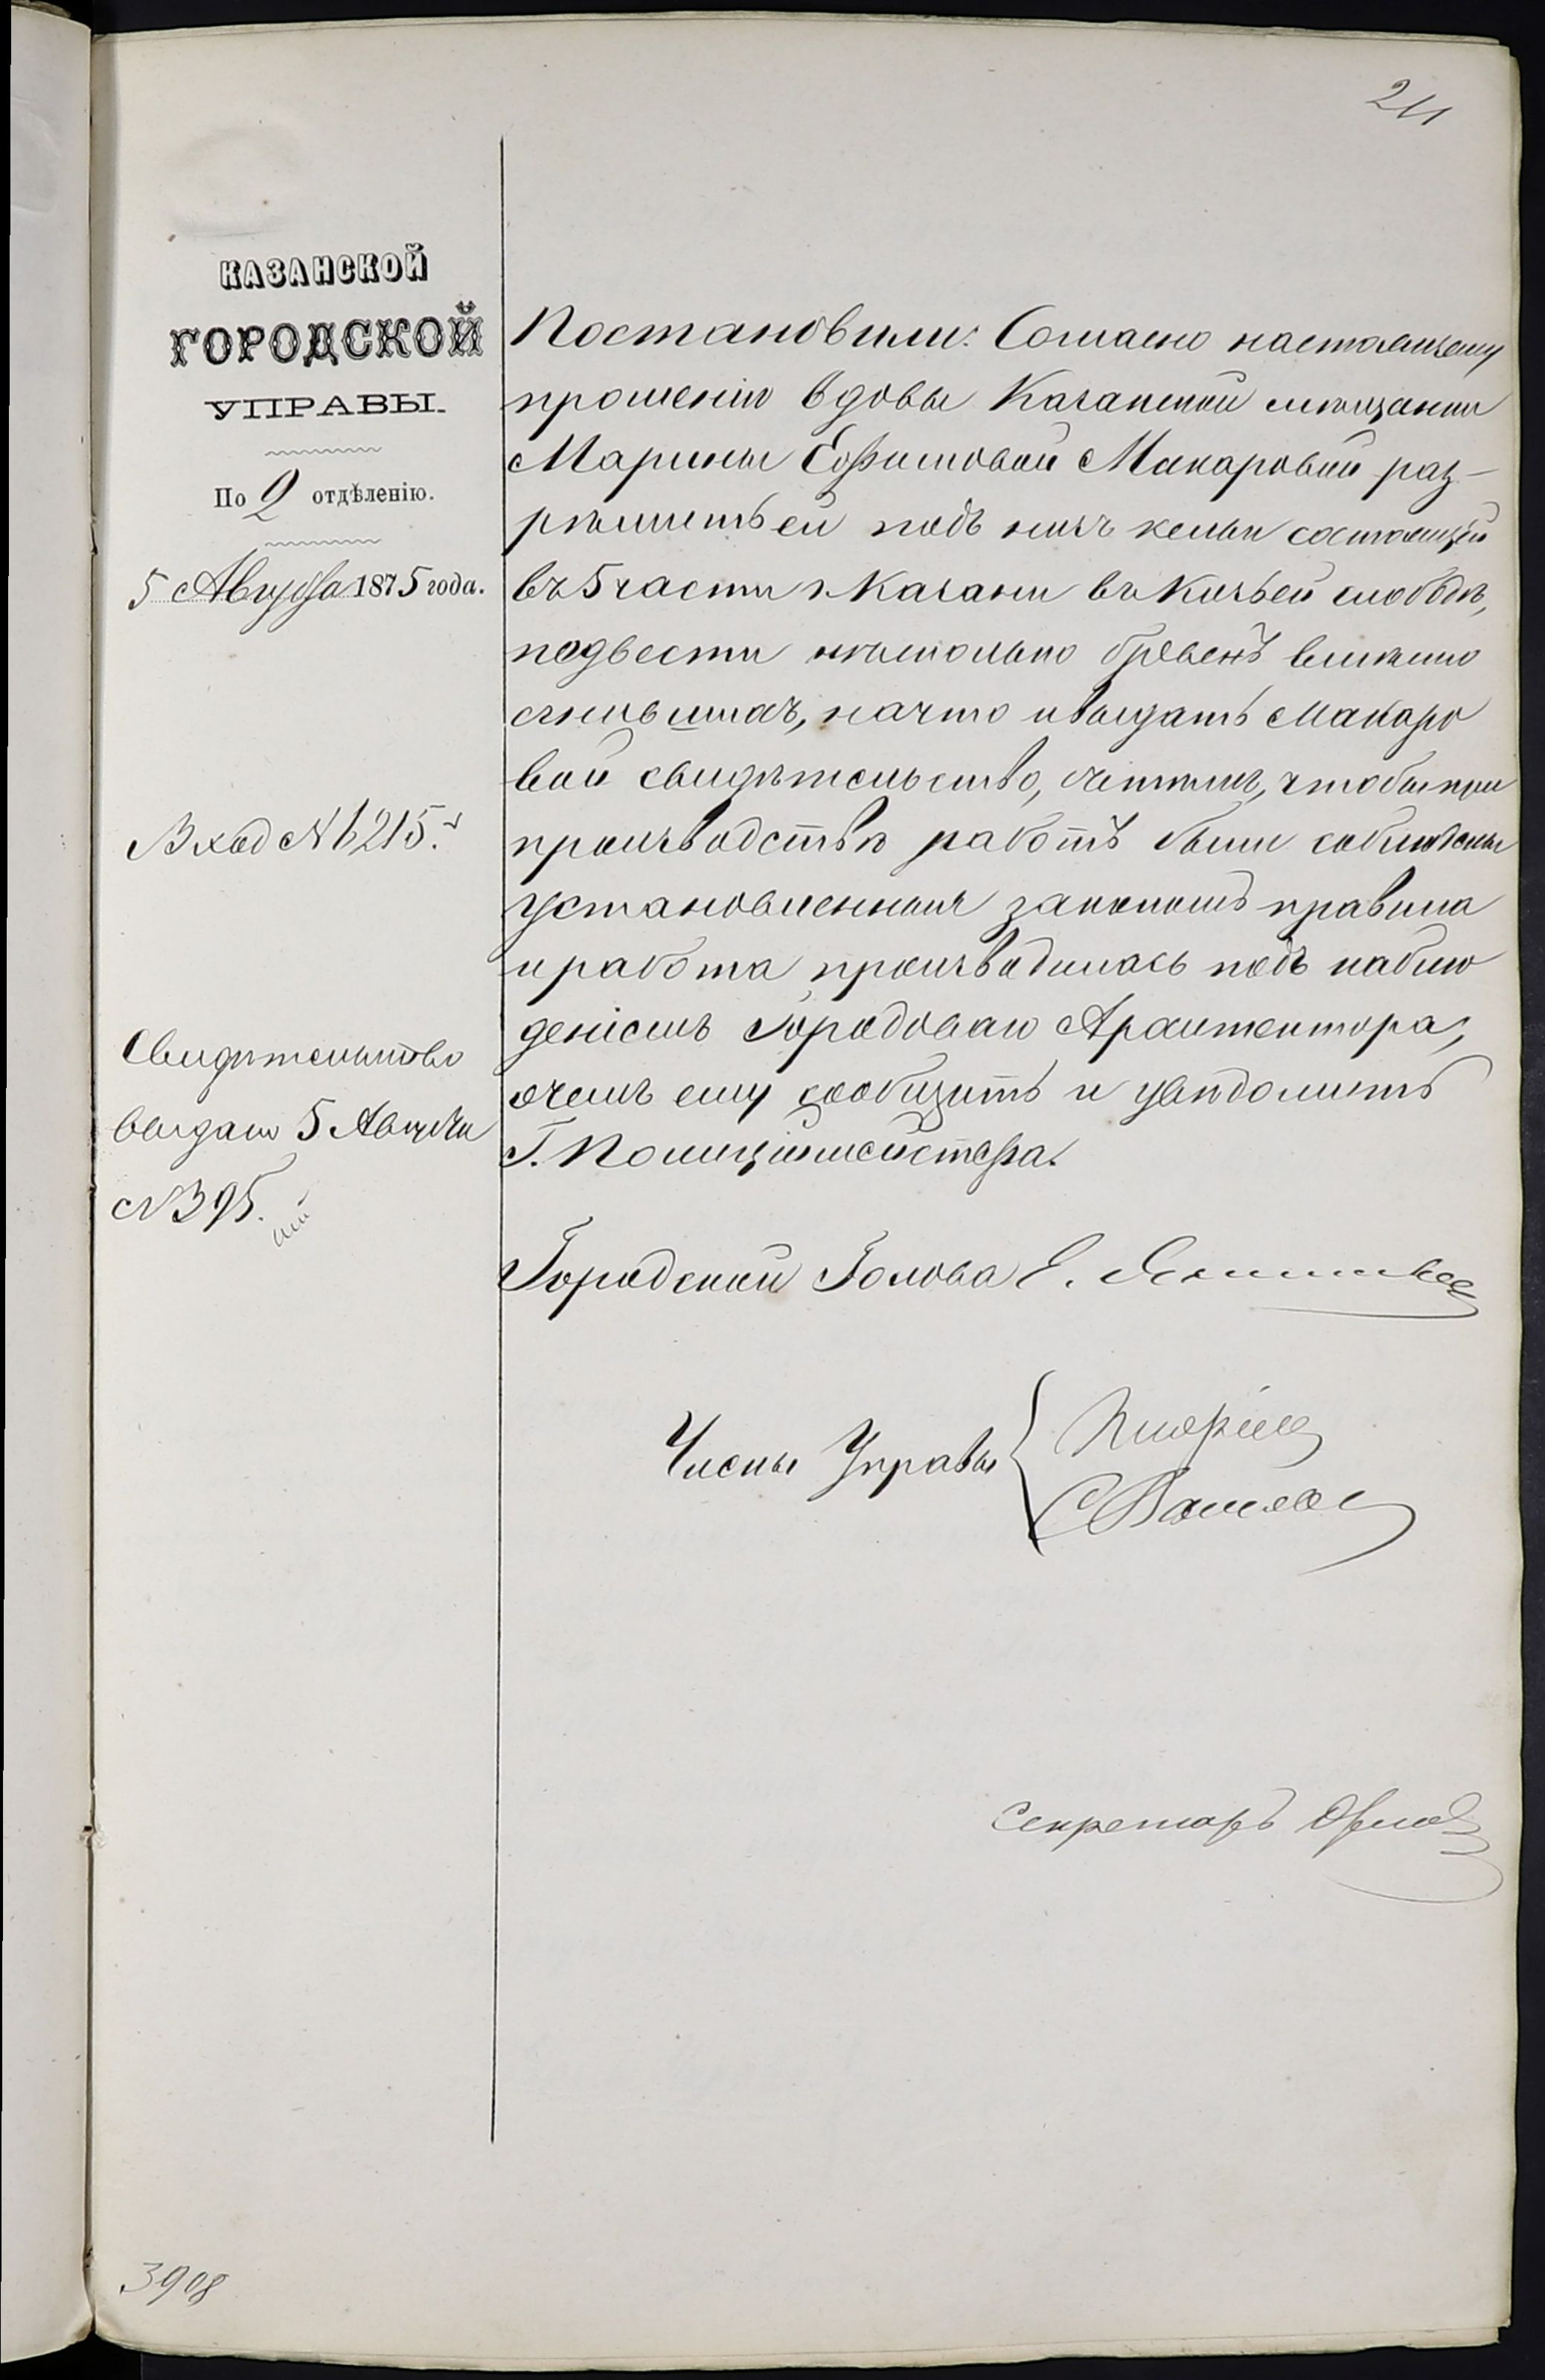 211
КАЗАНСКОЙ
ГОРОДСКОЙ
УПРАВЫ.
По 2 отдѣленію.
5 Августа 1875 года.
Вход № 6215.
Свидѣтельство
выдано 5 Августа
№ 395.
Постановили: Согласно настоящему
прошенію вдовы Казанской мѣщанки
Марины Ефимовой Макаровой раз-
рѣшить ей подъ низъ кельи состоящей
въ 5 части г. Казани въ Кизьей слободѣ,
подвести нѣсколько бревенъ вмѣсто
сгнившихъ, на что и выдать Макаро
вой свидѣтельство, съ тѣмъ, чтобы при
производствѣ работъ были соблюдены
установленныя закономъ правила
и работа производилась подъ наблю
деніемъ Городоваго Архитектора,
о чемъ ему сообщить и увѣдомить
Г. Полиціймейстера.
Городской Голова Е.
Члены Управы
Секретарь Орлов
3908